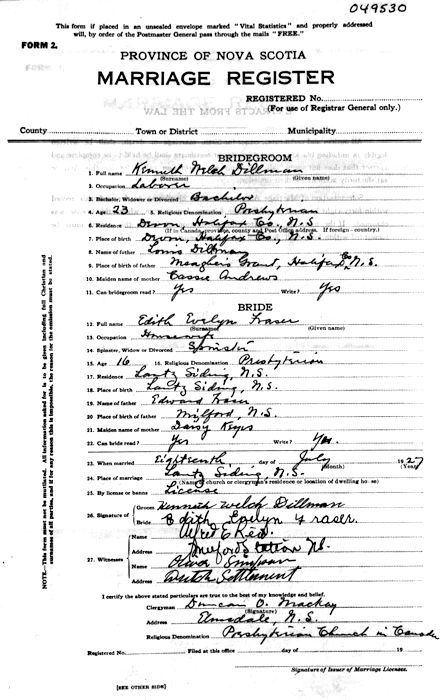 049530
This form if placed in an unsealed envelope marked "Vital Statistics" and properly addressed
will, by order of the Postmaster General pass through the mails "FREE."
FORM 2.
PROVINCE OF NOVA SCOTIA
MARRIAGE REGISTER
REGISTERED No.
(For use of Registrar General only.)
County Town or District Municipality
BRIDEGROOM
1. Full name Kenneth Welch Dillman
(Surname) (Given name)
2. Occupation Laborer
3. Bachelor, Widower or Divorced Bachelor
4. Age 23 5. Religious Denomination Presbyterian
6. Residence Devon, Halifax Co., N.S.
(If in Canada, province, county and Post Office address. If foreign - country.)
7. Place of birth Devon, Halifax Co., N.S.
8. Name of father Louis Dillman
9. Place of birth of father Meaghers Grant, Halifax Co. N.S.
10. Maiden name of mother Cassie Andrews
11. Can bridegroom read? Yes Write? Yes
BRIDE
12. Full name Edith Evelyn Fraser
(Surname) (Given name)
13. Occupation Housewife
14. Spinster, Widow or Divorced Spinster
15. Age 16 16. Religious Denomination Presbyterian
17. Residence Lantz Siding, N.S.
18. Place of birth Lantz Siding, N.S.
19. Name of father Edward Fraser
20. Place of birth of father Milford, N.S.
21. Maiden name of mother Daisy Keyes
22. Can bride read? Yes Write? Yes.
23. When married Eighteenth day of July 1927
(Month) (Year)
24. Place of marriage Lantz Siding, N.S.
(Name of church or clergyman's residence or location of dwelling house)
25. By license or banns License
26. Signature of Groom Kenneth Welch Dillman
Bride Edith Evelyn Fraser.
27. Witnesses
Name Alfred E
Address Milford Station N.S.
Name Oliver Simpson
Address Dutch Settlement
I certify the above stated particulars are true to the best of my knowledge and belief.
Clergyman Duncan O. Mackay
(Signature)
Address Elmsdale, N.S.
Religious Denomination Presbyterian Church in Canada
Registered No. Filed at this office day of 19
Signature of Issuer of Marriage Licenses.
[SEE OTHER SIDE]
NOTE—This form must not be mutilated. All information asked for is to be given including full Christian and
surnames of all parties, and if for any reason this is impossible, the reason for the omission must be stated.